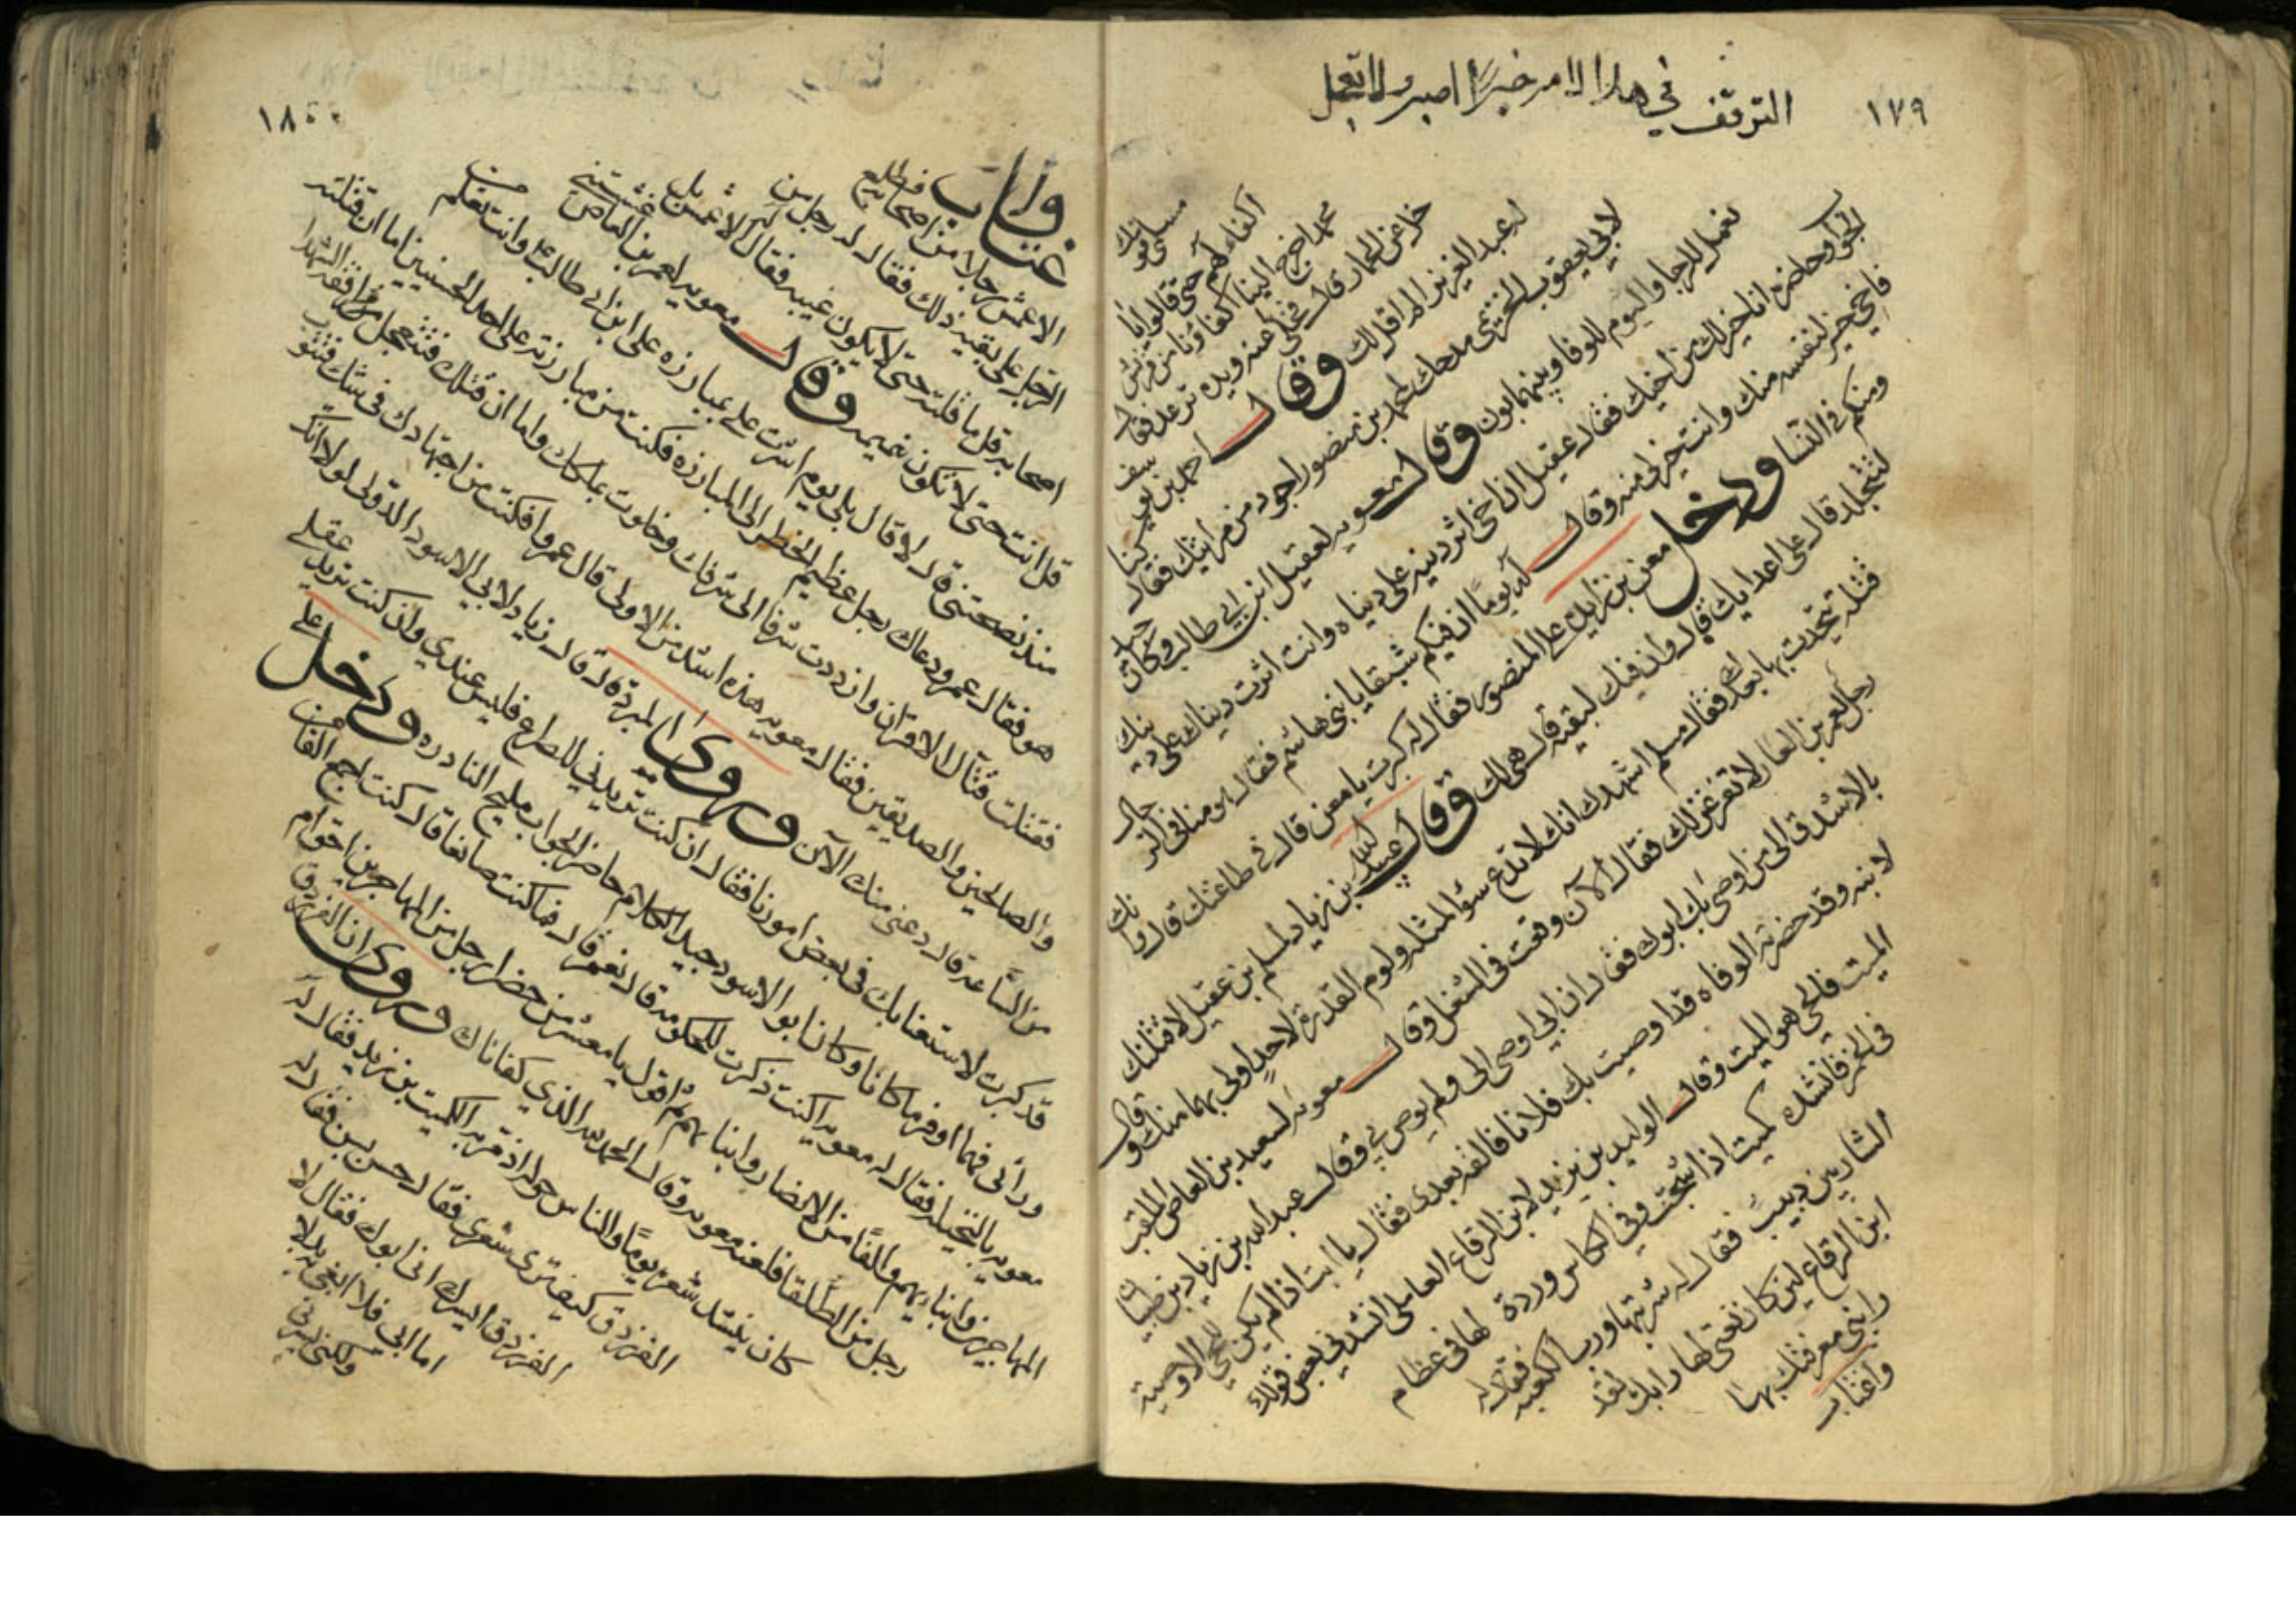 ١٧٩
التوقف في هذا الامر خيرًا اصبر ولا تعجل
اكفاءهم حتى قالوا يا
محمد اخرج الينا اكفاؤنا من قريش
لابي يعقوب الخزيمي مدحك لمحمد بن منصور اجود من مراثيك فقال كنا
نعمل للرجا واليوم للوفا وبينهما بون وقال معويه لعقيل ابن ابي طالب وكان جيد
الجواب حاضره انا خير لك من اخيك فقال عقيل ان اخي اثر دينه على دنياه وانت اثرت دنياك على دينك
فاخي خير لنفسه منك وانت خير لي منه وقال له يومًا ان فيكم شبقا يا بني هاشم فقال هو منا في الرجال
ومنكم في النسا ودخل معن بن زايده على المنصور فقال له كبرت يا معن قال في طاعتك قال وانك
لتتجلد قال على اعدايك قال وان فيك لبقيه قال هي لك وقال عبيد الله بن زياد لمسلم بن عقيل لاقتلنك
قتله تتحدث بها بعدك فقال مسلم اشهدك انك لا تدع سؤ المثله ولوم القدره لاحد اولى بهما منك وقال
رجل لعمرو بن العاص لاتفرغن لك فقال الآن وقعت في الشغل وقال معويه لسعيد بن العاص الملقب
بالاشدق الى من اوصى بك ابوك فقال ان ابي اوصى الي ولم يوص بي وقال عبد الله بن زياد بن ظبيان
لابنه وقد حضرته الوفاه قد اوصيت بك فلانا فالقه بعدي فقال يا ابت اذا لم يكن للحي الا وصية
الميت فالحي هو الميت وقال الوليد بن يزيد لابن الرقاع العاملي انشدني بعض قولك
في الخمر فانشده كميت اذا شجت وفي الكاس وردة لها في عظام
الشاربين دبيب فقال له شربتها ورب الكعبه فقال له
ابن الرقاع لين كان نعتي لها رابك لقد
رابني معرفتك بها
واغتاب
١٨٠
واغتاب
الاعمش رجلا من اصحابه فطلع
الرجل على بقيه ذلك فقال له رجل من
اصحابه قل له ما قلته حتى لا يكون غيبه فقال له الاعمش بل
قل انت حتى لا تكون نميمه وقال معويه لعمرو بن العاص
منذ نصحتني قال لا قال بلى يوم اشرت علي بمبارزه علي ابن ابي طالب وانت تعلم من
هو فقال عمرو دعاك رجل عظيم الخطر الى المبارزه فكنت من مبارزته على احد الحسنيين اما ان قتلته
فقتلت قتال الاقران وازددت شرفا الى شرفك وخلوت بملكك واما ان قتلك فتتعجل مرافقة الشهدا
والصالحين والصديقين فقال معويه هذه اشد من الاولى قال عمرو افكنت من اجهادك في شك فتتوب
من الساعة قال دعني منك الآن وروى المبرد قال قال زياد لابي الاسود الدولي لولا انك
قد كبرت لاستعنا بك في بعض امورنا فقال ان كنت تريدني للصراع فليس عندي وان كنت تريد عقلي
ورائي فهما اوفر ما كانا وكان ابو الاسود جيد الكلام حاضر الجواب مليح النادره ودخل على
معويه بالنخيله فقال له معويه اكنت ذكرت للحكومه قال نعم قال فما كنت صانعا قال كنت اجمع الفا من
المهاجرين وابنايهم والفًا من الانصار وابنايهم ثم اقول يا معشر من حضر ارجل من المهاجرين احق ام
رجل من الطلقا فلعنه معويه وقال الحمد لله الذي كفاناك وروى ان الفرزدق
كان ينشد شعره يومًا والناس حوله اذ مر به الكميت بن زيد فقال له
الفرزدق كيف ترى شعري فقال حسن بسن فقال له
الفرزدق ايسرك اني ابوك فقال لا
اما ابي فلا ابغي به بدلا
ولكن يسرني